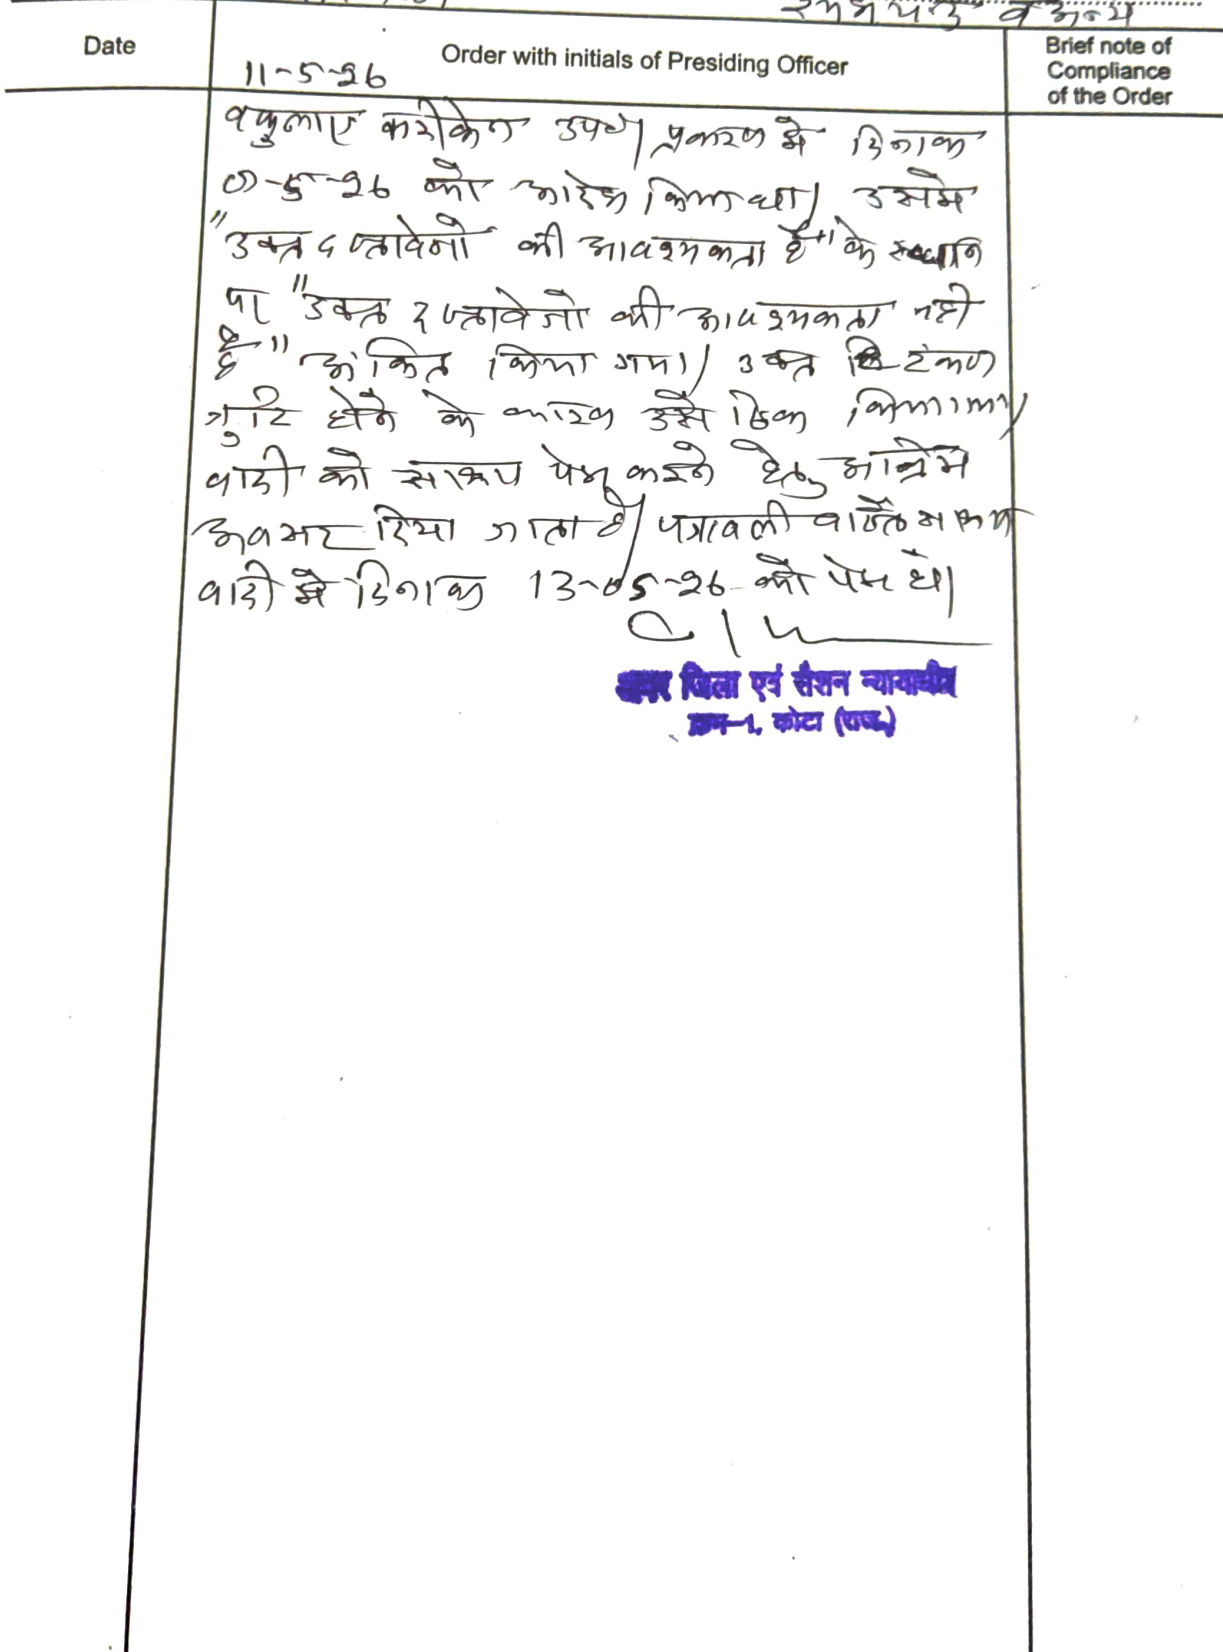 व अन्य
Date
Order with initials of Presiding Officer
Brief note of
Compliance
of the Order
11-5-26
वकुलाए फरीकेन उप० प्रकरण में दिनांक
-5-26 को आदेश किया था। उसमें
"उक्त दस्तावेजो की आवश्यकता है" के स्थान
पर "उक्त दस्तावेजो की आवश्यकता नही
है" अंकित किया गया। उक्त टंकण
त्रुटि होने के कारण उसे ठिक किया गया।
वादी को साक्ष्य पेश करने हेतु अन्तिम
अवसर दिया जाता है। पत्रावली वास्ते साक्ष्य
वादी में दिनांक 13-05-26 को पेश हो।
अपर जिला एवं सैशन न्यायाधीश
क्रम-1, कोटा (राज.)